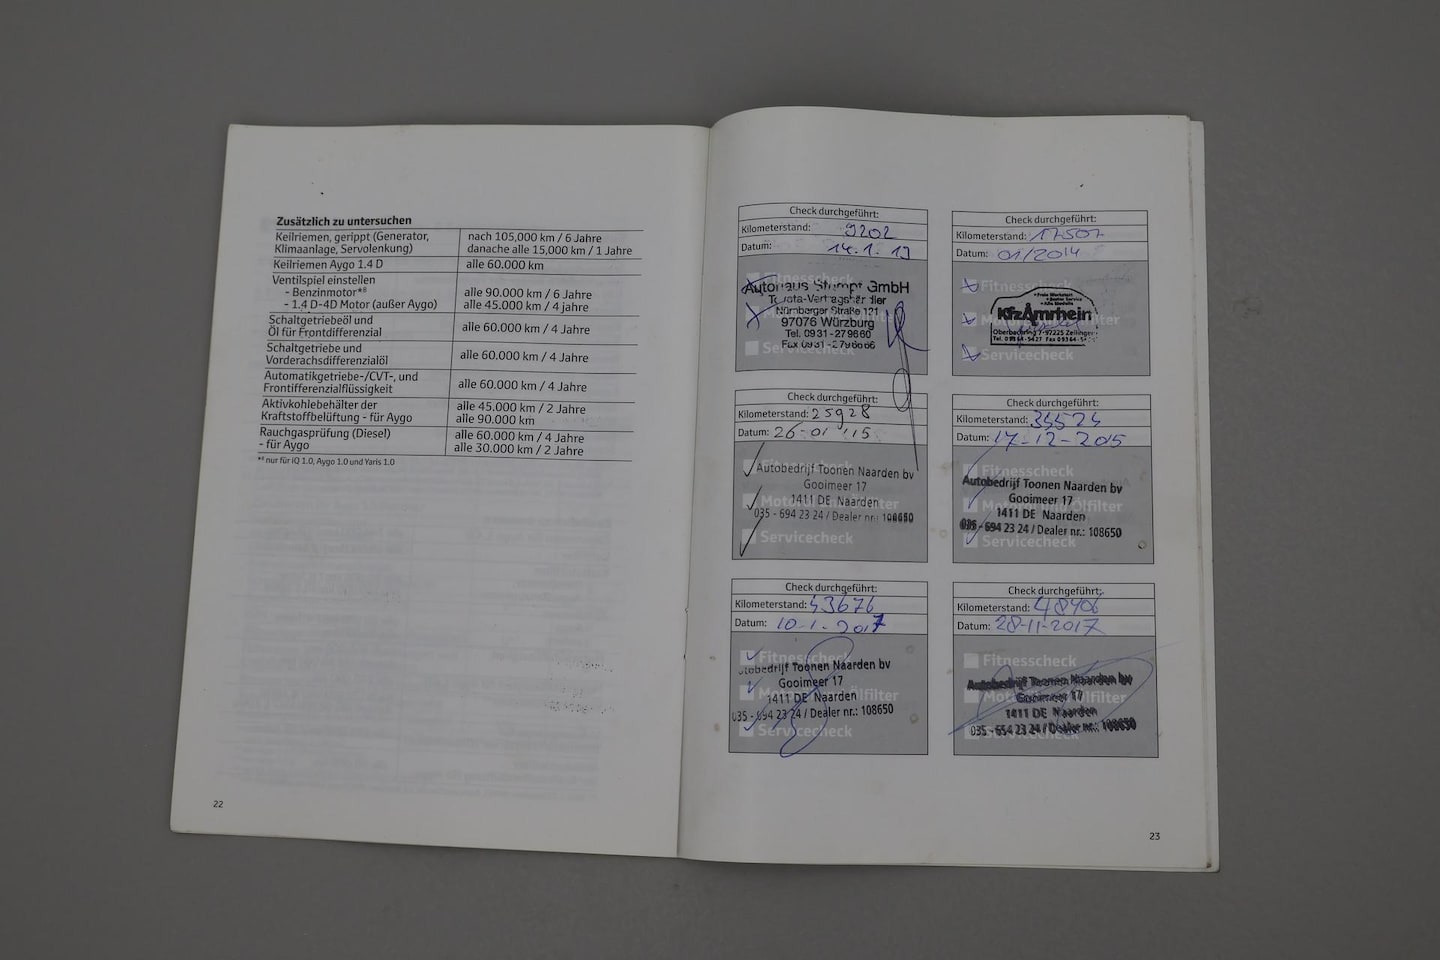 Zusätzlich zu untersuchen
Keilriemen, gerippt (Generator, Klimaanlage, Servolenkung) nach 105,000 km / 6 Jahre danache alle 15,000 km / 1 Jahre
Keilriemen Aygo 1.4 D alle 60.000 km
Ventilspiel einstellen
- Benzinmotor*⁸ alle 90.000 km / 6 Jahre
- 1.4 D-4D Motor (außer Aygo) alle 45.000 km / 4 jahre
Schaltgetriebeöl und Öl für Frontdifferenzial alle 60.000 km / 4 Jahre
Schaltgetriebe und Vorderachsdifferenzialöl alle 60.000 km / 4 Jahre
Automatikgetriebe-/CVT-, und Frontifferenzialflüssigkeit alle 60.000 km / 4 Jahre
Aktivkohlebehälter der Kraftstoffbelüftung - für Aygo alle 45.000 km / 2 Jahre alle 90.000 km
Rauchgasprüfung (Diesel) - für Aygo alle 60.000 km / 4 Jahre alle 30.000 km / 2 Jahre
*⁸ nur für iQ 1.0, Aygo 1.0 und Yaris 1.0
22
Check durchgeführt:
Kilometerstand: 9202
Datum: 14.1.13
Fitnesscheck
Autohaus Stumpf GmbH
Toyota-Vertragshändler
Nürnberger Straße 121
97076 Würzburg
Tel. 0931-279660
Fax 0931-2796666
Servicecheck
Check durchgeführt:
Kilometerstand: 17507
Datum: 01/2014
Fitnesscheck
Kfz Amrhein
Oberbachring 7-97225 Zellingen
Servicecheck
Check durchgeführt:
Kilometerstand: 25928
Datum: 26-01-'15
Autobedrijf Toonen Naarden bv
Gooimeer 17
1411 DE Naarden
035 - 694 23 24 / Dealer nr.: 108650
Servicecheck
Check durchgeführt:
Kilometerstand: 34524
Datum: 17-12-2015
Fitnesscheck
Autobedrijf Toonen Naarden bv
Gooimeer 17
1411 DE Naarden
035 - 694 23 24 / Dealer nr.: 108650
Servicecheck
Check durchgeführt:
Kilometerstand: 43676
Datum: 10-1-2017
Fitnesscheck
Autobedrijf Toonen Naarden bv
Gooimeer 17
1411 DE Naarden
035 - 694 23 24 / Dealer nr.: 108650
Servicecheck
Check durchgeführt:
Kilometerstand: 48406
Datum: 28-11-2017
Fitnesscheck
Autobedrijf Toonen Naarden bv
Gooimeer 17
1411 DE Naarden
035 - 654 23 24 / Dealer nr.: 108650
Servicecheck
23